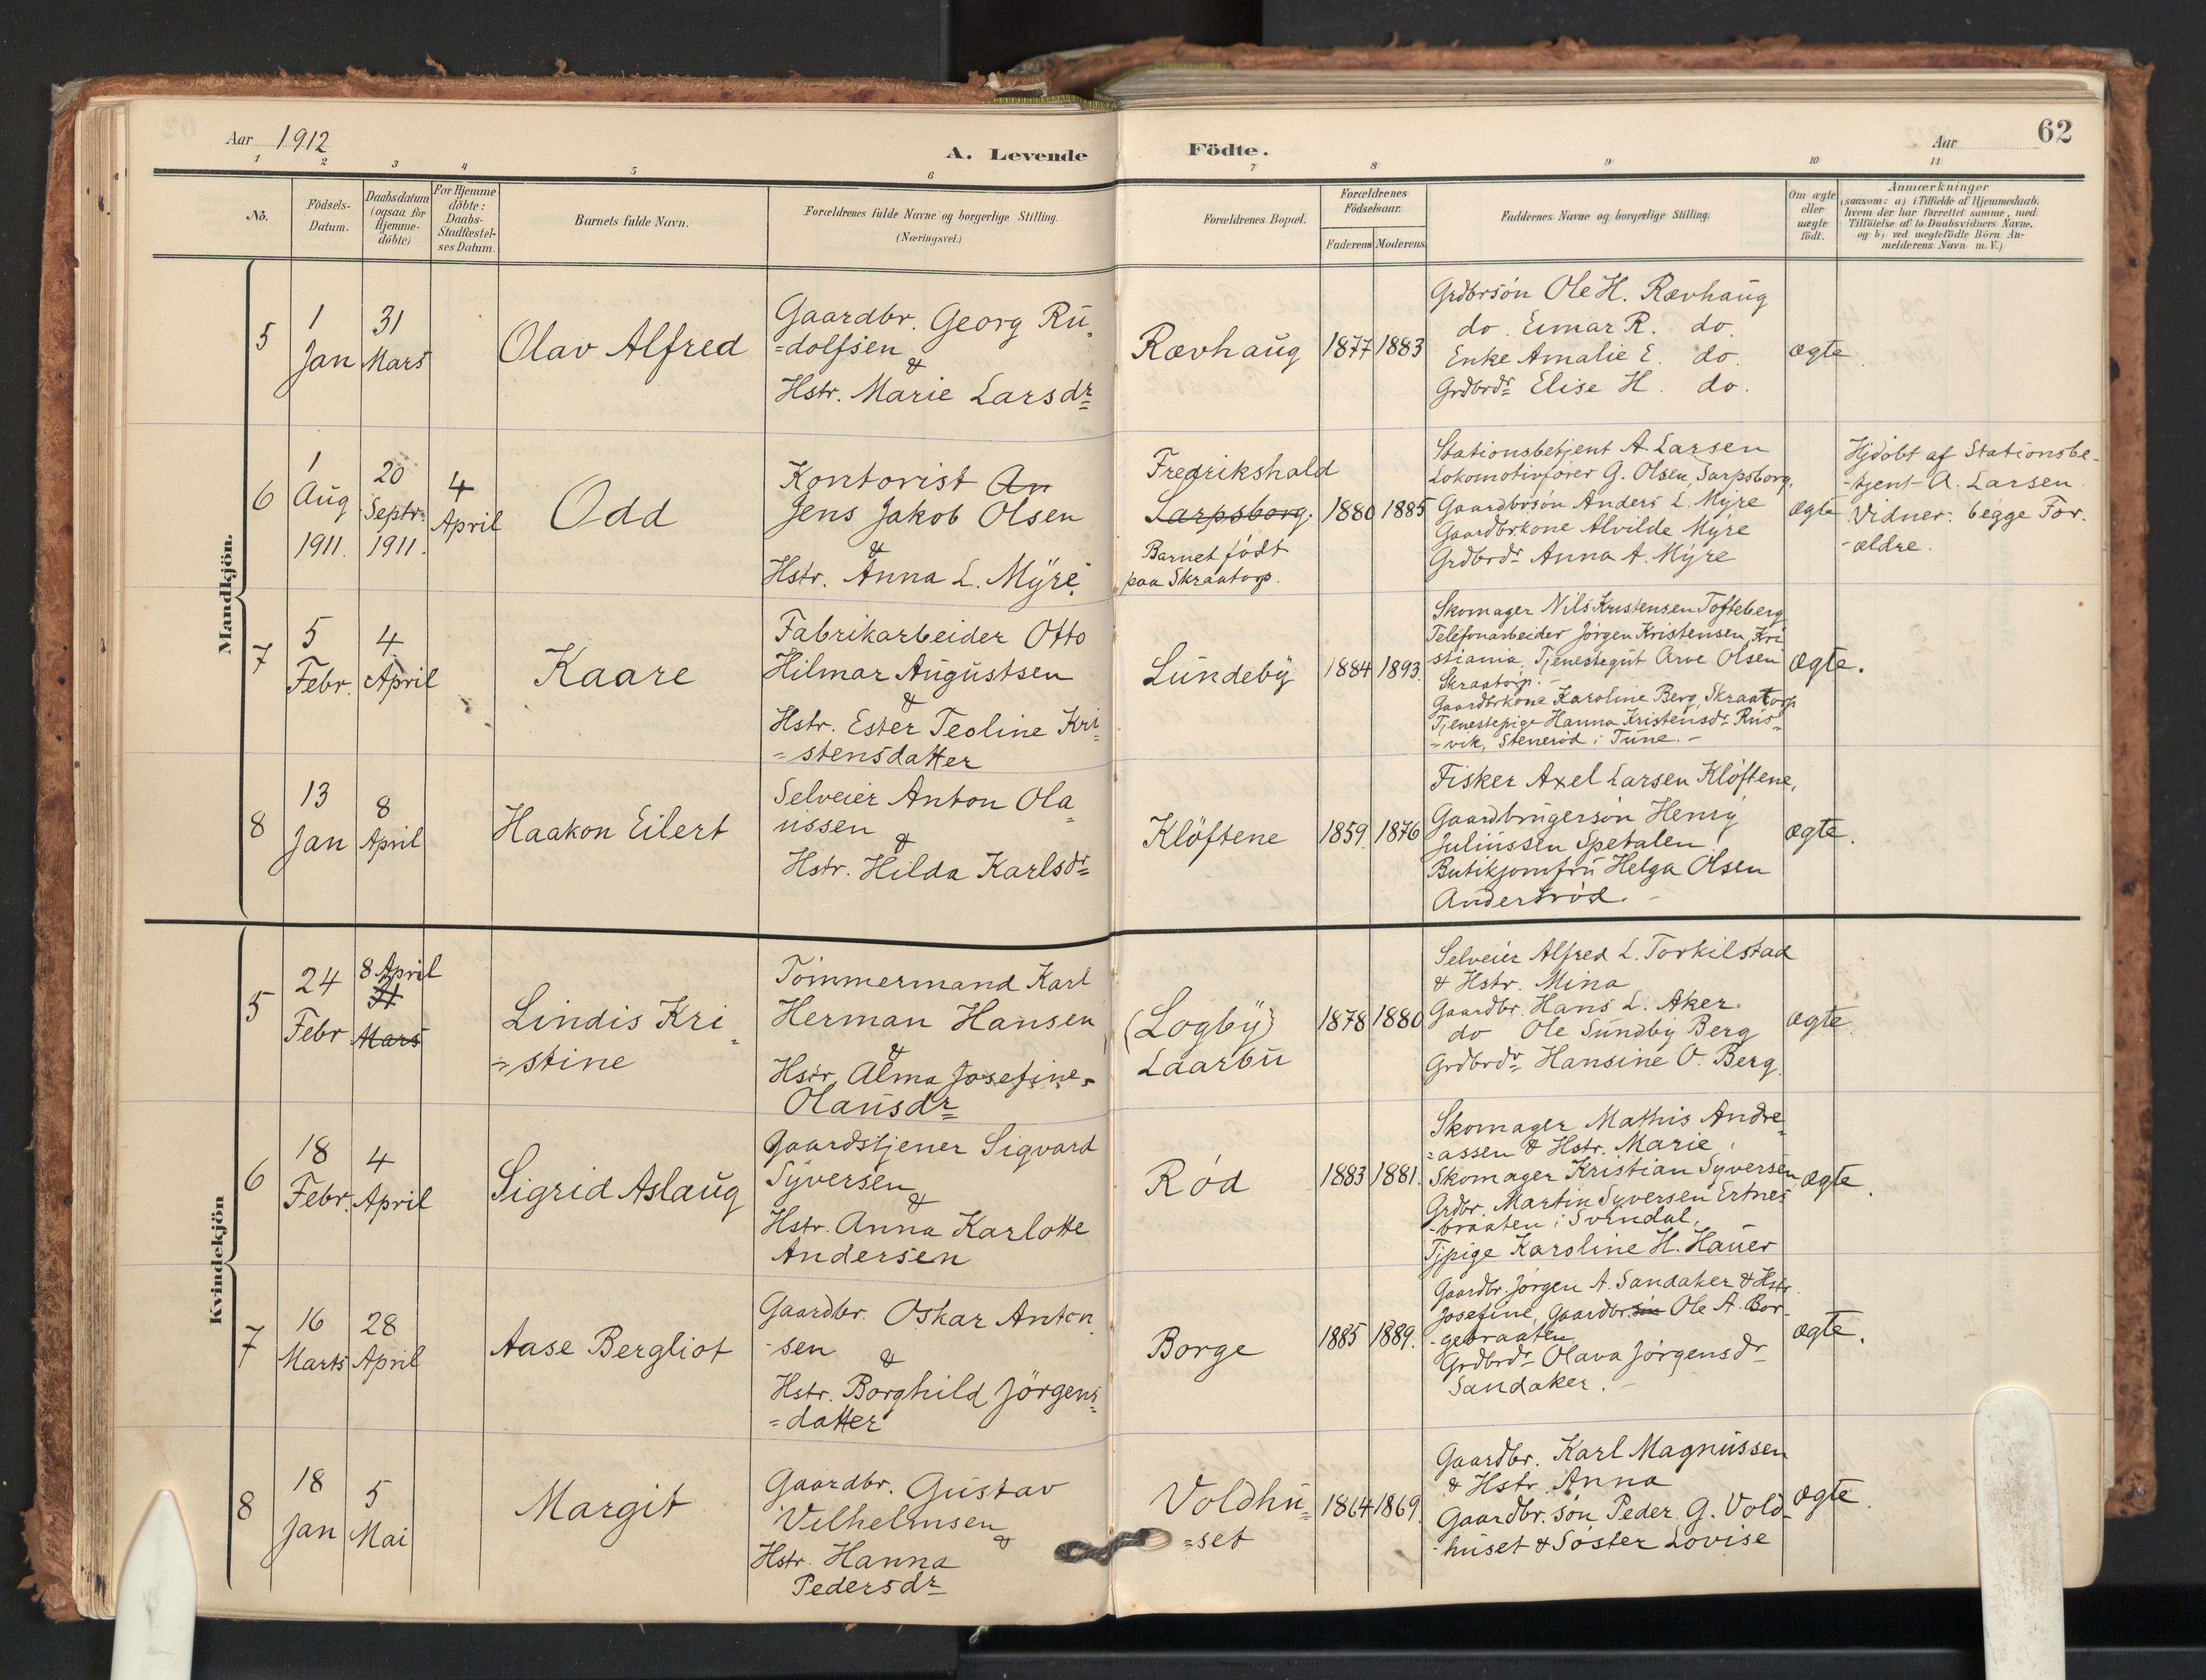 Aar 1912
A. Levende Födte.
Aar
62
1 2 3 4 5 6 7 8 9 10 11
No.
Födsels-
Datum.
Daabsdatum
(ogsaa for
Hjemme-
döbte)
For Hjemme
döbte:
Daabs-
Stadfæstel-
ses Datum.
Barnets fulde Navn.
Forældrenes fulde Navne og borgerlige Stilling.
(Næringsvei.)
Forældrenes Bopæl.
Forældrenes
Födselsaar.
Faderens Moderens
Faddernes Navne og borgerlige Stilling.
Om ægte
eller
uægte
födt.
Anmærkninger
(saasom: a) i Tilfælde af Hjemmedaab,
hvem der har forrettet samme, med
Tilföielse af to Daabsvidners Navne,
og b) ved uægtefödte Börn An-
melderens Navn m. V.)
Mandkjön.
5
1
Jan
31
Mars
Olav Alfred
Gaardbr. Georg Ru-
=dolfsen
&
Hstr. Marie Larsdr
Rævhaug
1877 1883
Grdbrsøn Ole H. Rævhaug
do. Eimar R. do.
Enke Amalie E. do.
Grdbrdr Elise H. do.
ægte
6
1
Aug
1911.
20
Septr.
1911.
4
April
Odd
Kontorist An
Jens Jakob Olsen
&
Hstr. Anna L. Myre
Fredrikshald
Sarpsborg.
Barnet født
paa Skraatorp.
1880 1885
Stationsbetjent A. Larsen
Lokomotivfører G. Olsen, Sarpsborg.
Gaardbrsøn Anders L. Myre
Gaardbrkone Alvilde Myre
Grdbrdr Anna A. Myre
ægte
Hjdöbt af Stationsbe-
-tjent A. Larsen.
Vidner: begge For-
-ældre.
7
5
Febr.
4
April
Kaare
Fabrikarbeider Otto
Hilmar Augustsen
&
Hstr. Ester Teoline Kri
=stensdatter
Lundeby
1884 1893.
Skomager Nils Kristensen Tofteberg
Telefonarbeider Jørgen Kristensen, Kri
stiania. Tjenestegut Arve Olsen
Skraatorp. -
Gaardbrkone Karoline Berg, Skraatorp
Tjenestepige Hanna Kristensdr Rus-
=vik, Stenerød i Tune. -
ægte.
8
13
Jan
8
April
Haakon Eilert
Selveier Anton Ola
ussen
&
Hstr. Hilda Karlsdr
Kløftene
1859. 1876
Fisker Axel Larsen Kløftene,
Gaardbrugersøn Henry
Juliussen Spetalen
Butikjomfru Helga Olsen
Andersrød. -
ægte.
Kvindekjön
5
24
Febr
8 April
31
Mars
Lindis Kri
=stine
Tømmermand Karl
Herman Hansen
&
Hstr. Alma Josefine
Olausdr
(Logby)
Laarbu
1878 1880
Selveier Alfred L. Torkilstad
& Hstr. Mina
Gaardbr. Hans L. Aker.
do Ole Sundby Berg
Grdbrdr Hansine O. Berg.
ægte.
6
18
Febr.
4
April
Sigrid Aslaug
Gaardstjener Sigvard
Syversen
&
Hstr. Anna Karlotte
Andersen
Rød
1883 1881.
Skomager Mathis Andre-
=assen & Hstr. Marie,
Skomager Kristian Syversen
Grdbr. Martin Syversen Ertnes
-braaten i Svendal,
Tjpige Karoline H. Hauer
ægte.
7
16
Marts
28
April
Aase Bergliot
Gaardbr. Oskar Anton
-sen
&
Hstr. Borghild Jörgens
=datter
Borge
1885 1889.
Gaardbr. Jørgen A. Sandaker & Hstr.
Josefine, Gaardbr.søn Ole A. Bor-
-gebraaten
Grdbrdr Olava Jørgensdr
Sandaker. -
ægte.
8
18
Jan
5
Mai
Margit
Gaardbr. Gustav
Vilhelmsen
&
Hstr. Hanna
Pedersdr
Voldhu
=set
1864 1869.
Gaardbr. Karl Magnussen
& Hstr. Anna
Gaardbr. søn Peder G. Vold-
-huset & Søster Lovise
ægte.